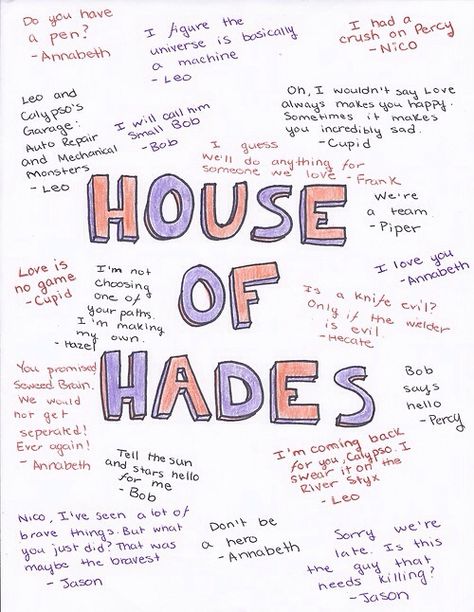 Do you have
a pen?
- Annabeth
I figure the
universe is basically
a machine
- Leo
I had a
crush on Percy
- Nico
Leo and
Calypso's
Garage:
Auto Repair
and Mechanical
Monsters
- Leo
I will call him
Small Bob
- Bob
Oh, I wouldn't say Love
always makes you happy.
Sometimes it makes
you incredibly sad.
- Cupid
I guess
we'll do anything for
someone we love - Frank
We're
a team
- Piper
HOUSE
OF
HADES
Love is
no game
- Cupid
I'm not
choosing
one of
your paths.
I'm making
my own.
- Hazel
I love you
- Annabeth
Is a knife evil?
Only if the wielder
is evil.
- Hecate
You promised
Seaweed Brain.
We would
not get
seperated!
Ever again!
- Annabeth
Bob
says
hello
- Percy
Tell the sun
and stars hello
for me
- Bob
I'm coming back
for you, Calypso. I
swear it on the
River Styx
- Leo
Nico, I've seen a lot of
brave things. But what
you just did? That was
maybe the bravest
- Jason
Don't be
a hero
- Annabeth
Sorry we're
late. Is this
the guy that
needs killing?
- Jason